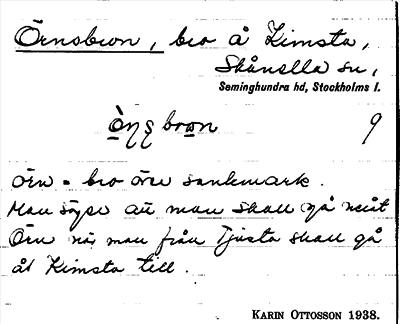 Örnsbron, bro å Kimsta,
Skånella sn,
Seminghundra hd, Stockholms l.
bron 9
örn = bro över sankmark.
Man säger att man skall gå neråt
Örn när man från Tjusta skall gå
åt Kimsta till.
KARIN OTTOSSON 1938.